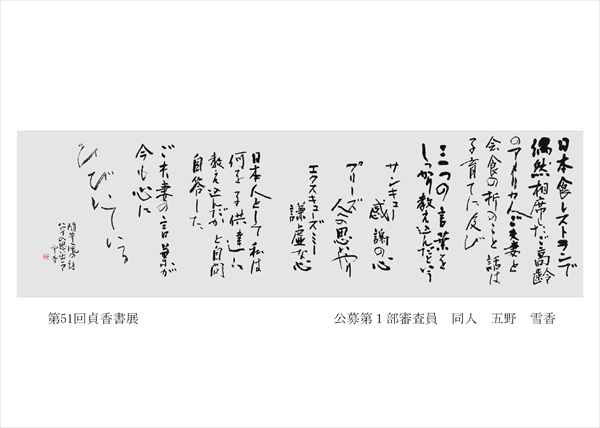 日本食レストランで
偶然相席したご高齢
のアメリカ人ご夫妻と
会食の折のこと 話は
子育てに及び
三つの言葉を
しっかり教え込んだという
サンキュー
感謝の心
プリーズ
人への思いやり
エクスキューズミー
謙虚な心
日本人として私は
何を子供達に
教え込んだかと自問
自答した
ご夫妻の言葉が
今も心に
ひびいている
第51回貞香書展
公募第1部審査員 同人 五野 雪香